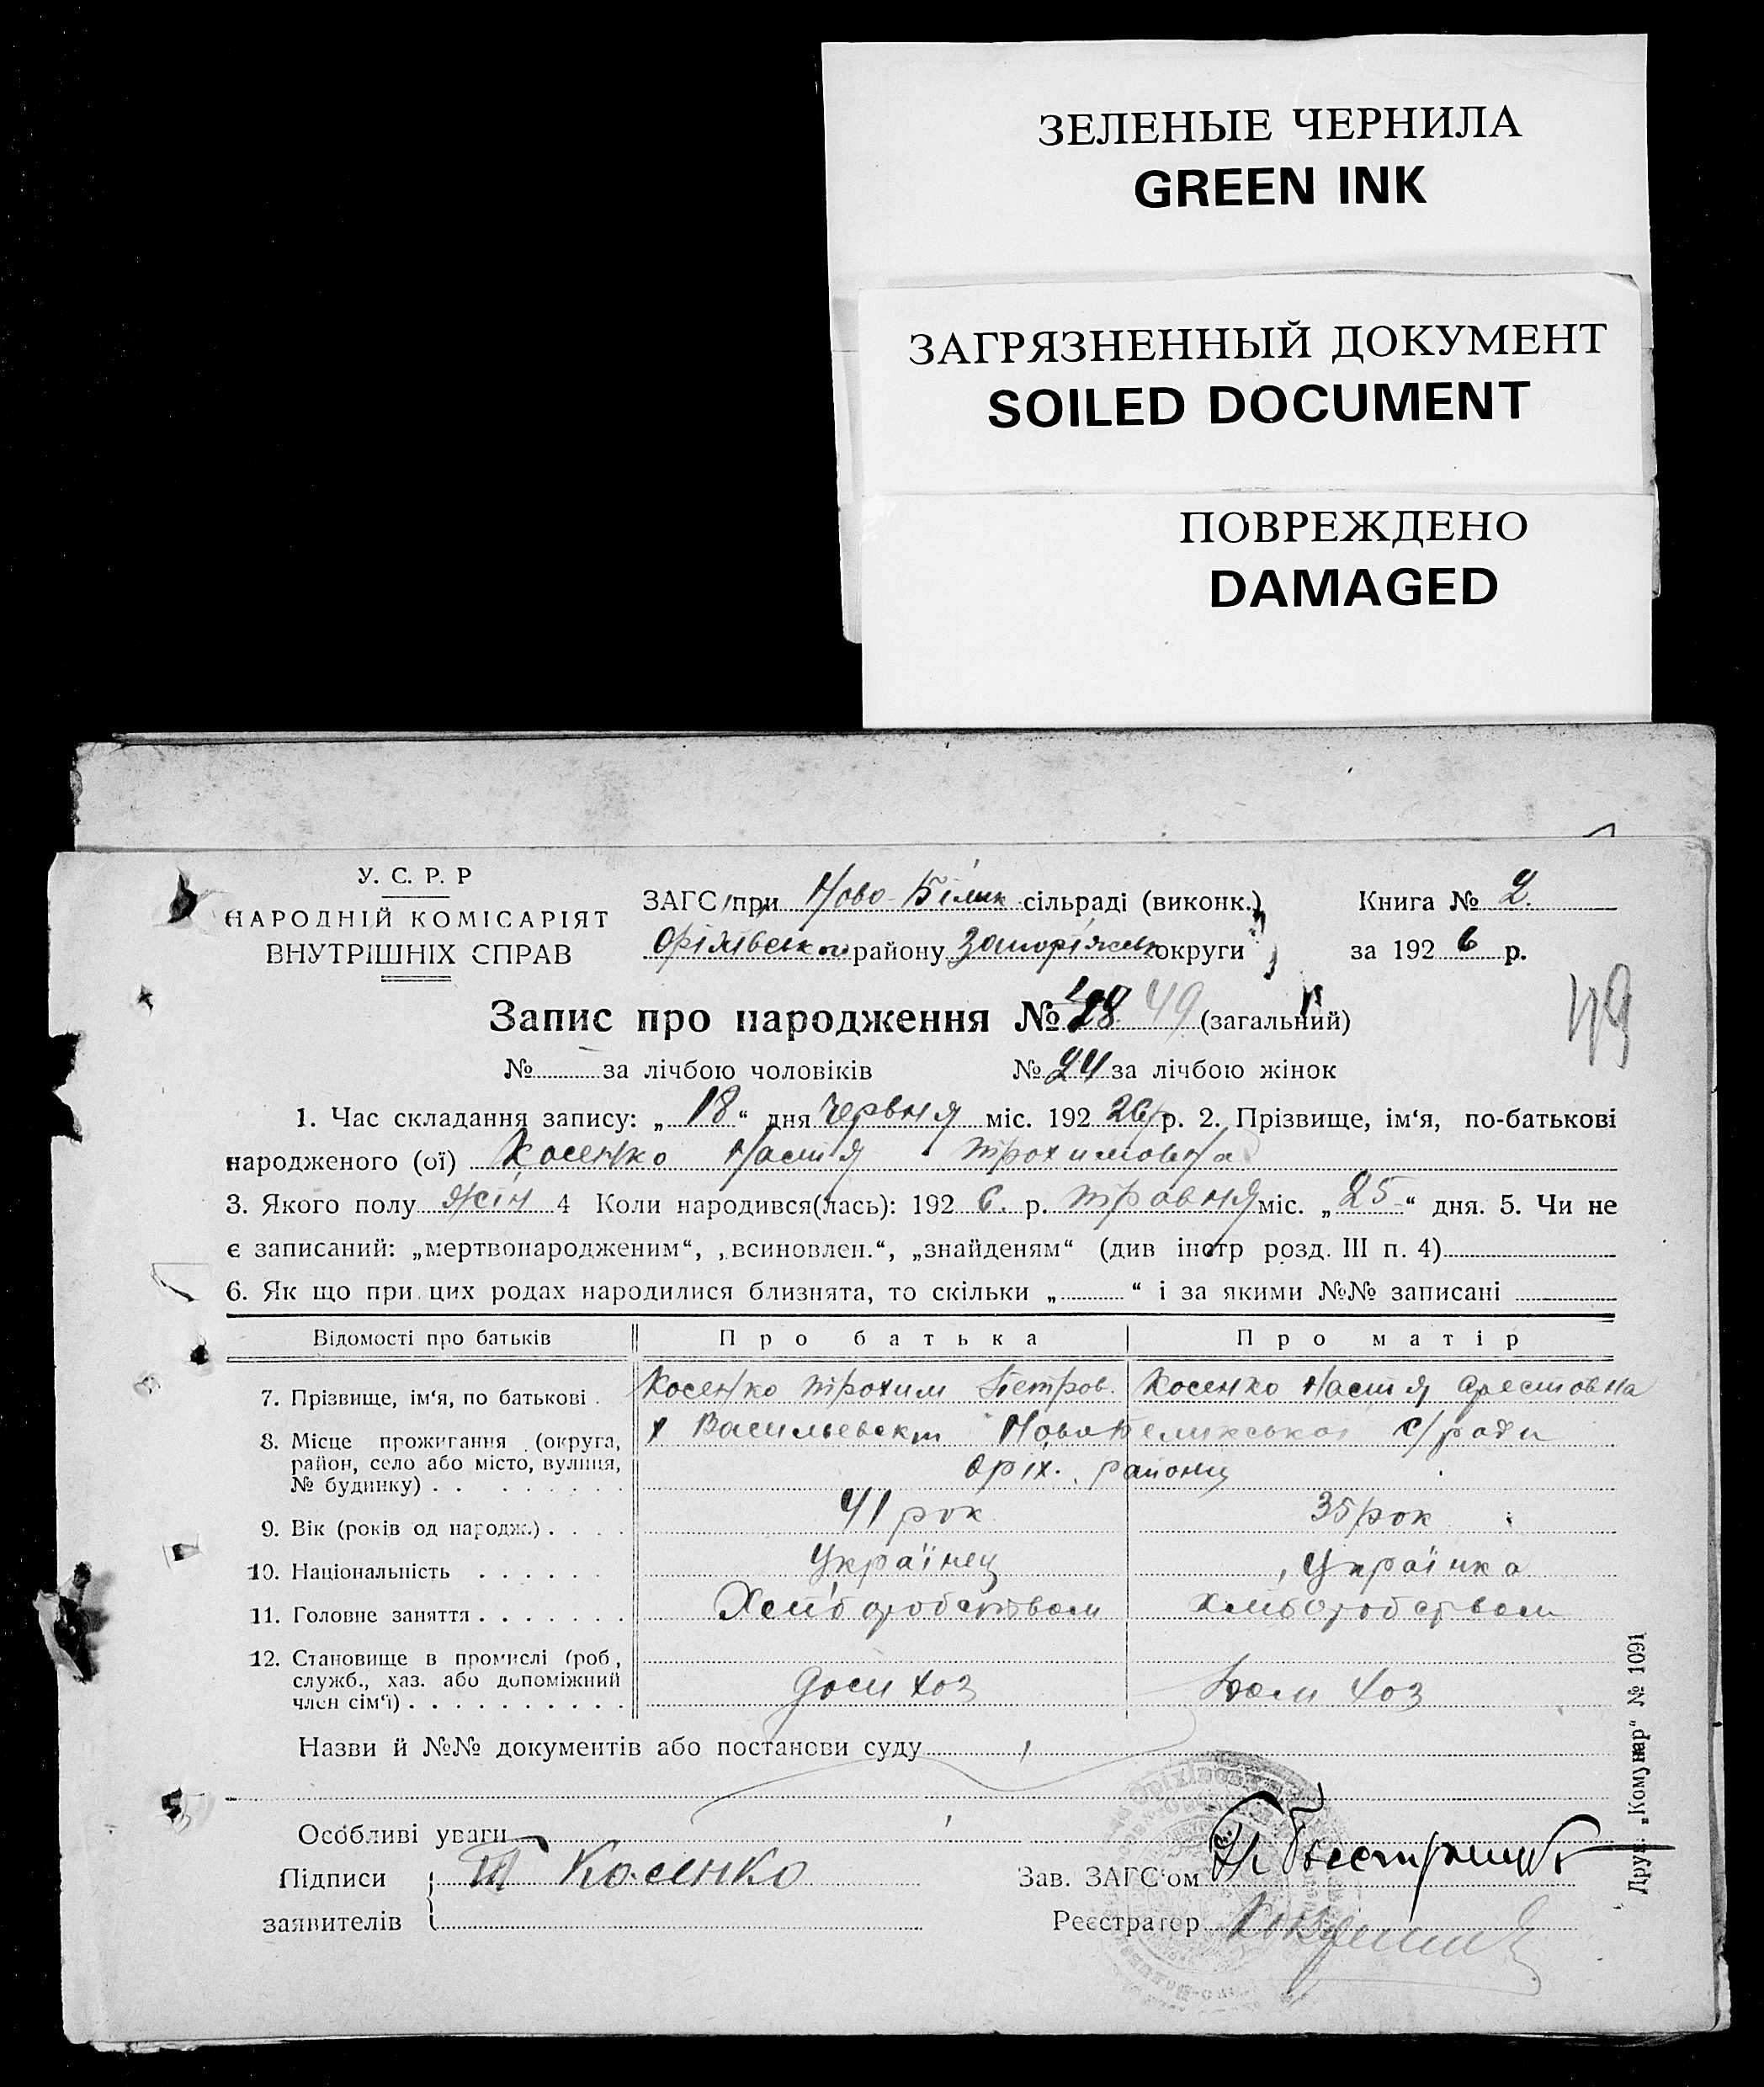 ЗЕЛЕНЫЕ ЧЕРНИЛА
GREEN INK
ЗАГРЯЗНЕННЫЙ ДОКУМЕНТ
SOILED DOCUMENT
ПОВРЕЖДЕНО
DAMAGED
У. С. Р. Р
НАРОДНІЙ КОМІСАРІЯТ
ВНУТРІШНІХ СПРАВ
ЗАГС при Ново-Білик сільраді (виконк.)
Оріхівськ району Запоріжськ округи
Книга № 2.
за 192 6 р.
Запис про народження № 49 (загальний)
49
№ за лічбою чоловіків № 24 за лічбою жінок
1. Час складання запису: „ 18 “ дня Червня міс. 192 26 р. 2. Прізвище, ім‘я, по-батькові
народженого (ої) Косенко Настя Трохимовна
3. Якого полу жін 4 Коли народився(лась): 192 6. р. травня міс. „ 25 “ дня. 5. Чи не
є записаний: „мертвонародженим“, „всиновлен.“, „знайденям“ (див інстр розд. III п. 4)
6. Як що при цих родах народилися близнята, то скільки „ “ і за якими №№ записані
Відомості про батьків Про батька Про матір
7. Прізвище, ім‘я, по батькові . Косенко трохим Петров. Косенко Настя Орестовна
8. Місце прожигання (округа, район, село або місто, вулиця, № будинку) . . х Васильевскт с/ради
Оріх. району
9. Вік (років од народж.) . . . . 41 рок 35 рок
10. Національність . . . . . . Українец Українка
11. Головне заняття . . . . . . .
12. Становище в промислі (роб, служб., хаз. або допоміжний член сім‘ї) . . . . . . . . . . хоз хоз
Назви й №№ документів або постанови суду
Особливі уваги
Підписи заявителів Т Косенко
Зав. ЗАГС‘ом
Реєстратор
Друк. „Комунар“ № 1091